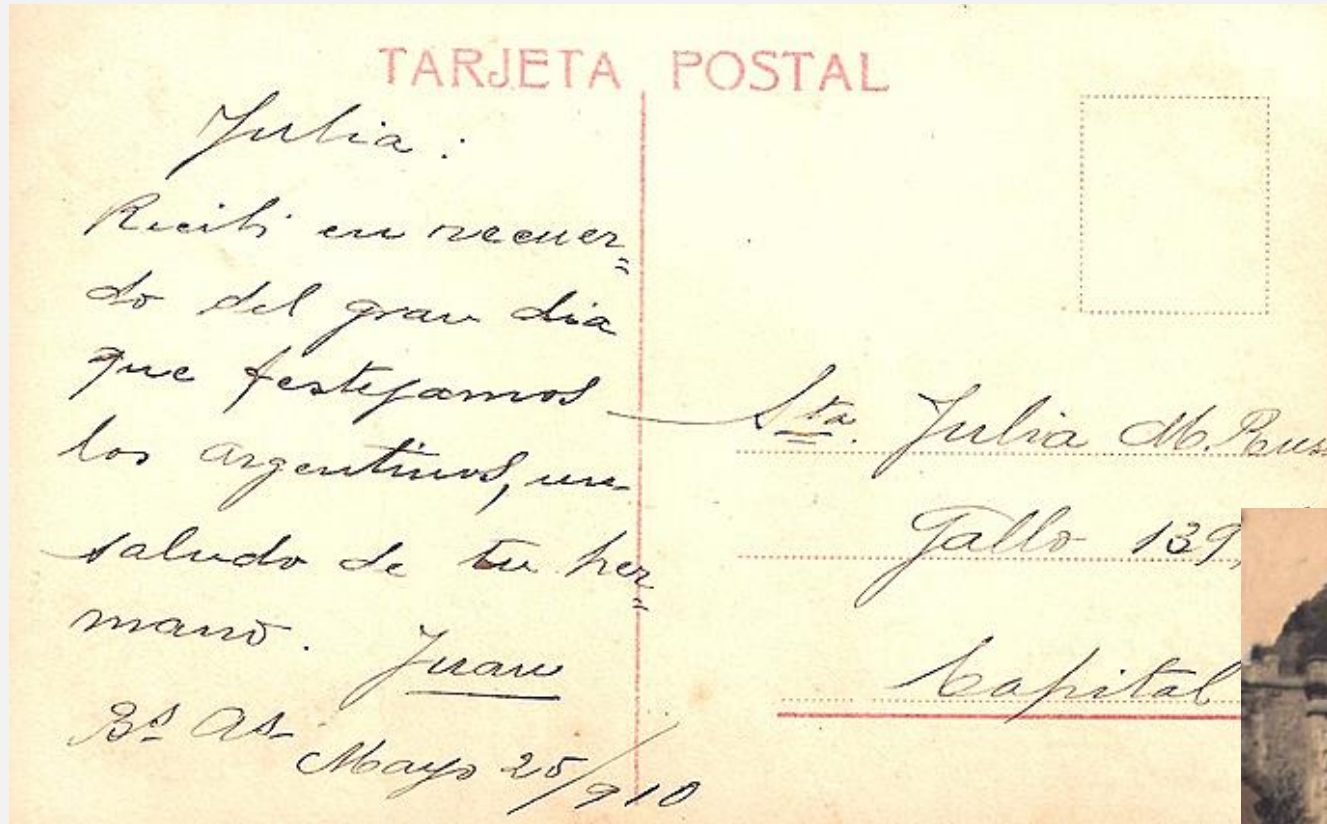 TARJETA POSTAL
Julia:
Recibi en recuer=
do del gran dia
que festejamos
los argentinos, un
saludo de tu her=
mano. Juan
Bs As
Mayo 25/910
Sta. Julia M.
Gallo 139
Capital